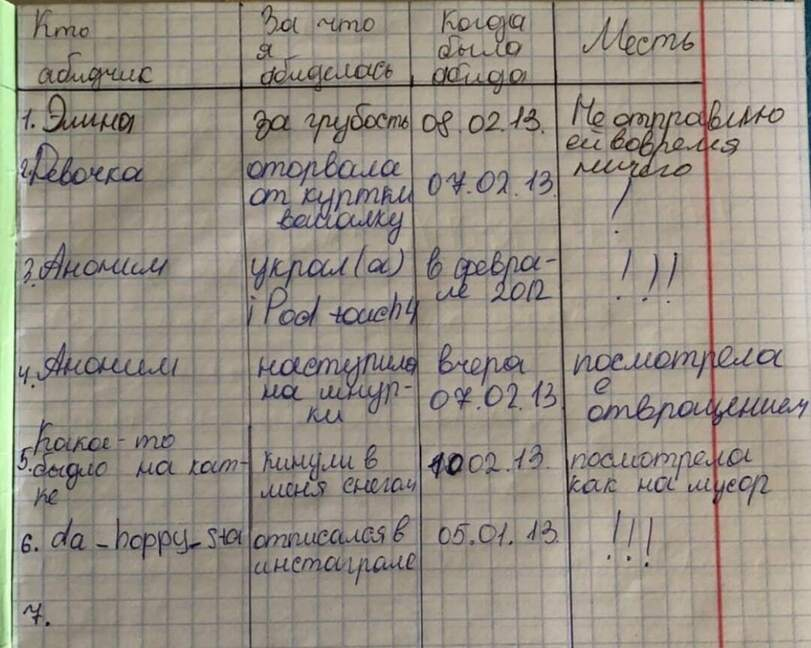 Кто
абидчик
За что
я
абиделась
Когда
была
абида
Месть
1. Элина
за грубость
08.02.13.
Не отправлю
ей вовремя
ничего
2. Девочка
оторвала
от куртки
вашалку
07.02.13
!
3. Аноним
украл(а)
iPod touch 4
в февра-
ле 2012
! ! !
4. Аноним
наступила
на шнур-
ки
вчера
07.02.13
посмотрела
с
отвращением
Какое-то
5. быдло на кат-
ке
кинули в
меня снегом
10 02.13.
посмотрела
как на мусор
6. da_happy_sta
отписался в
инстаграме
05.01.13
!!!
7.